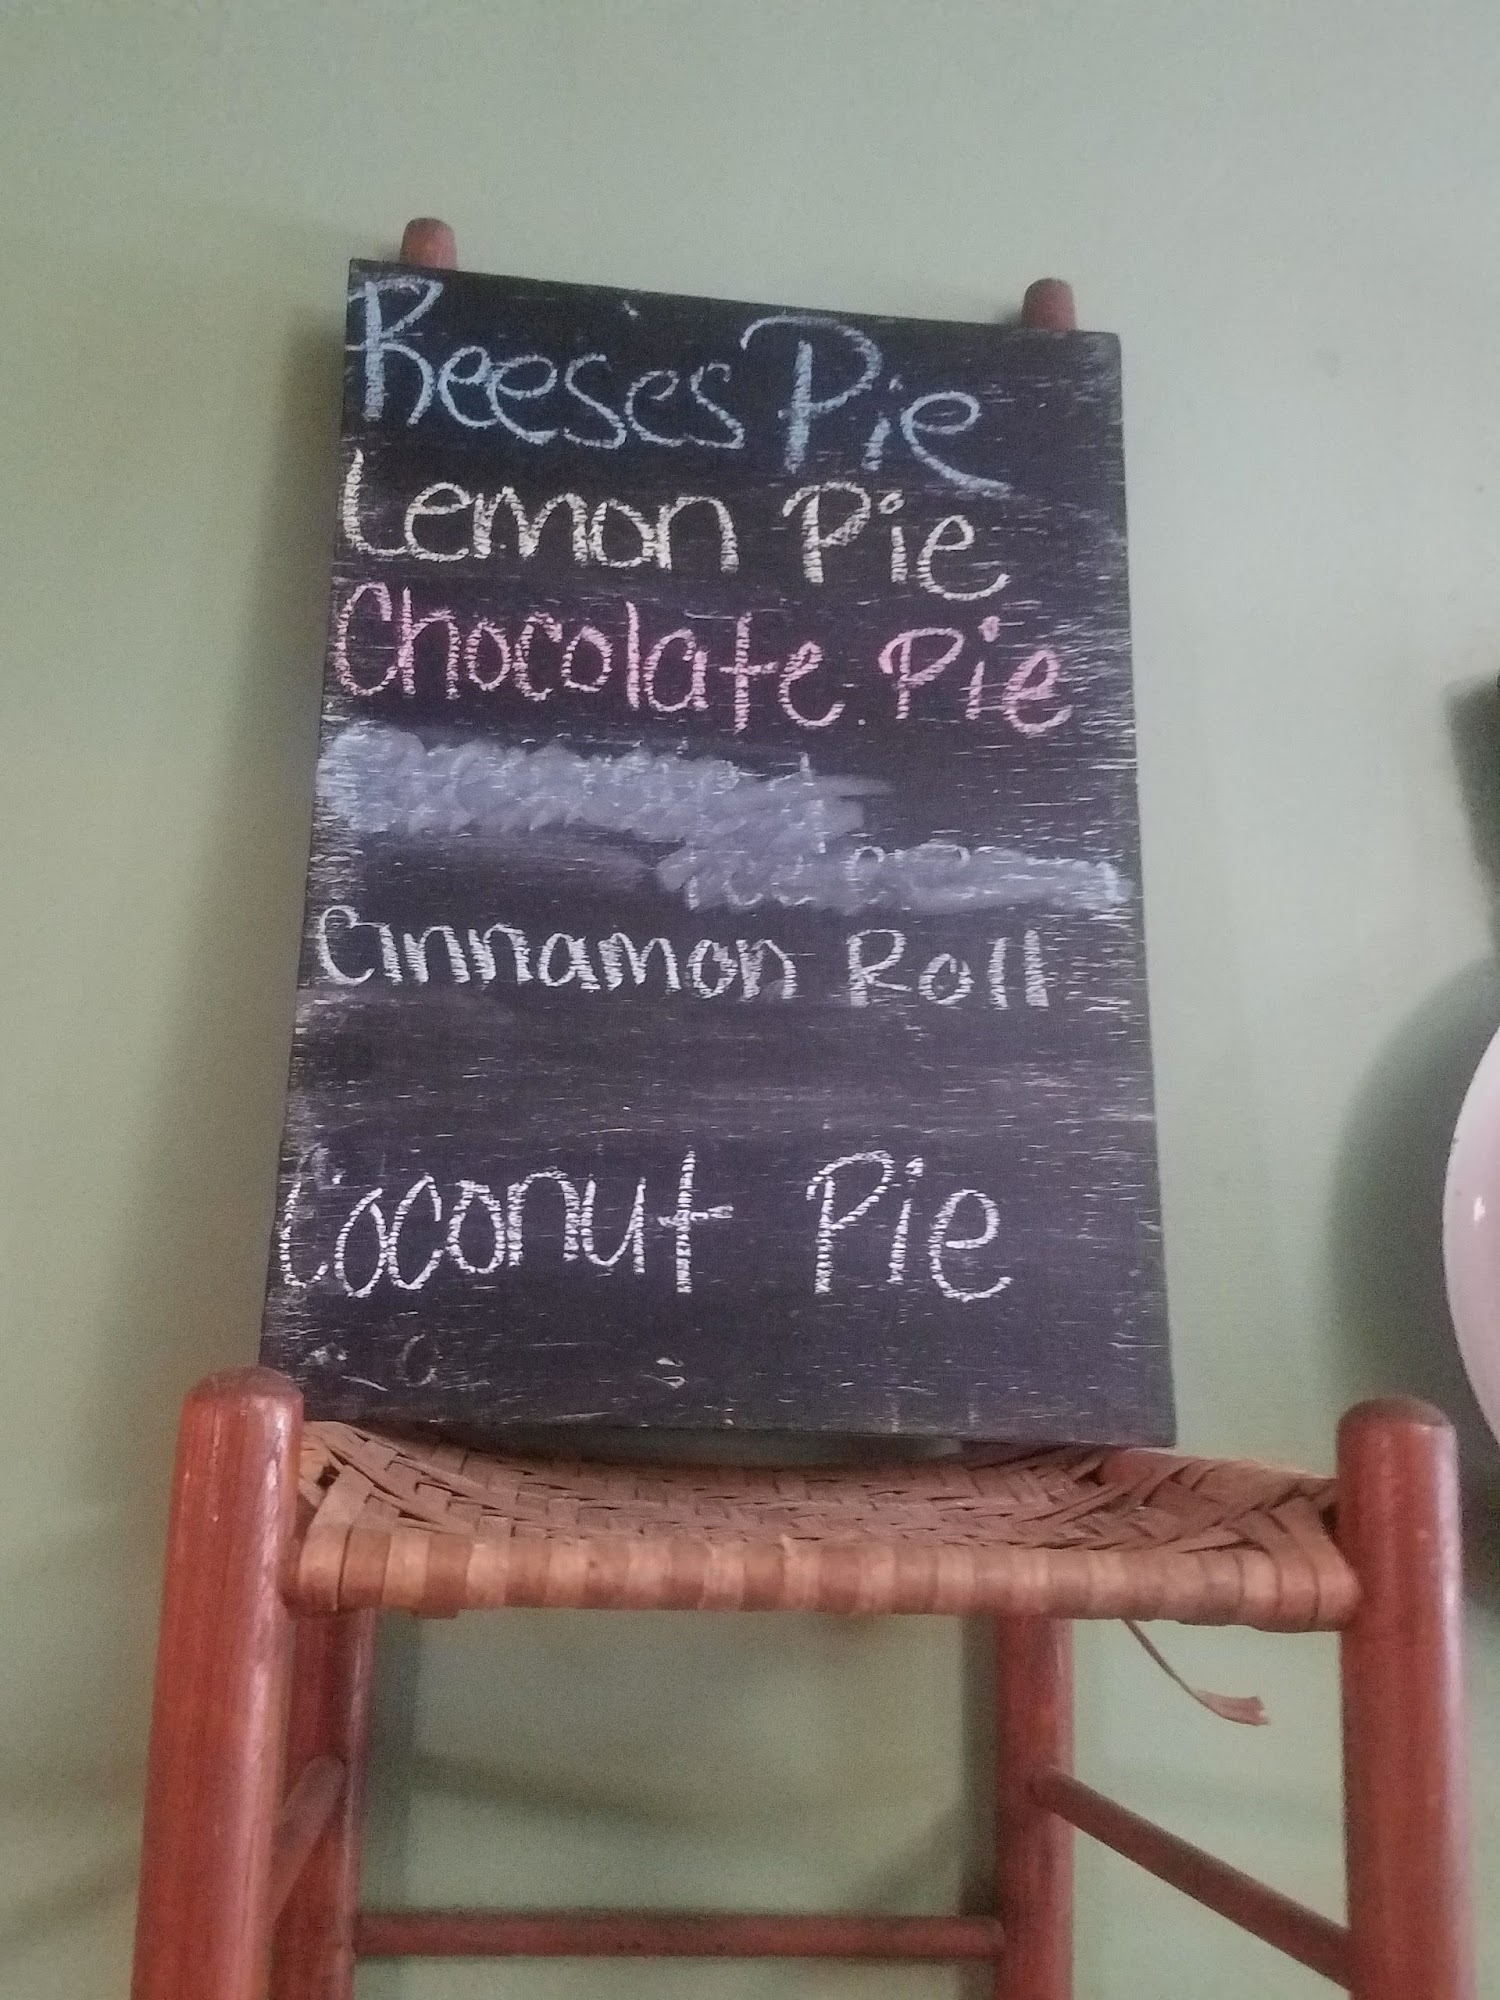 Reese's Pie
Lemon Pie
Chocolate Pie
Cinnamon Roll
Coconut Pie